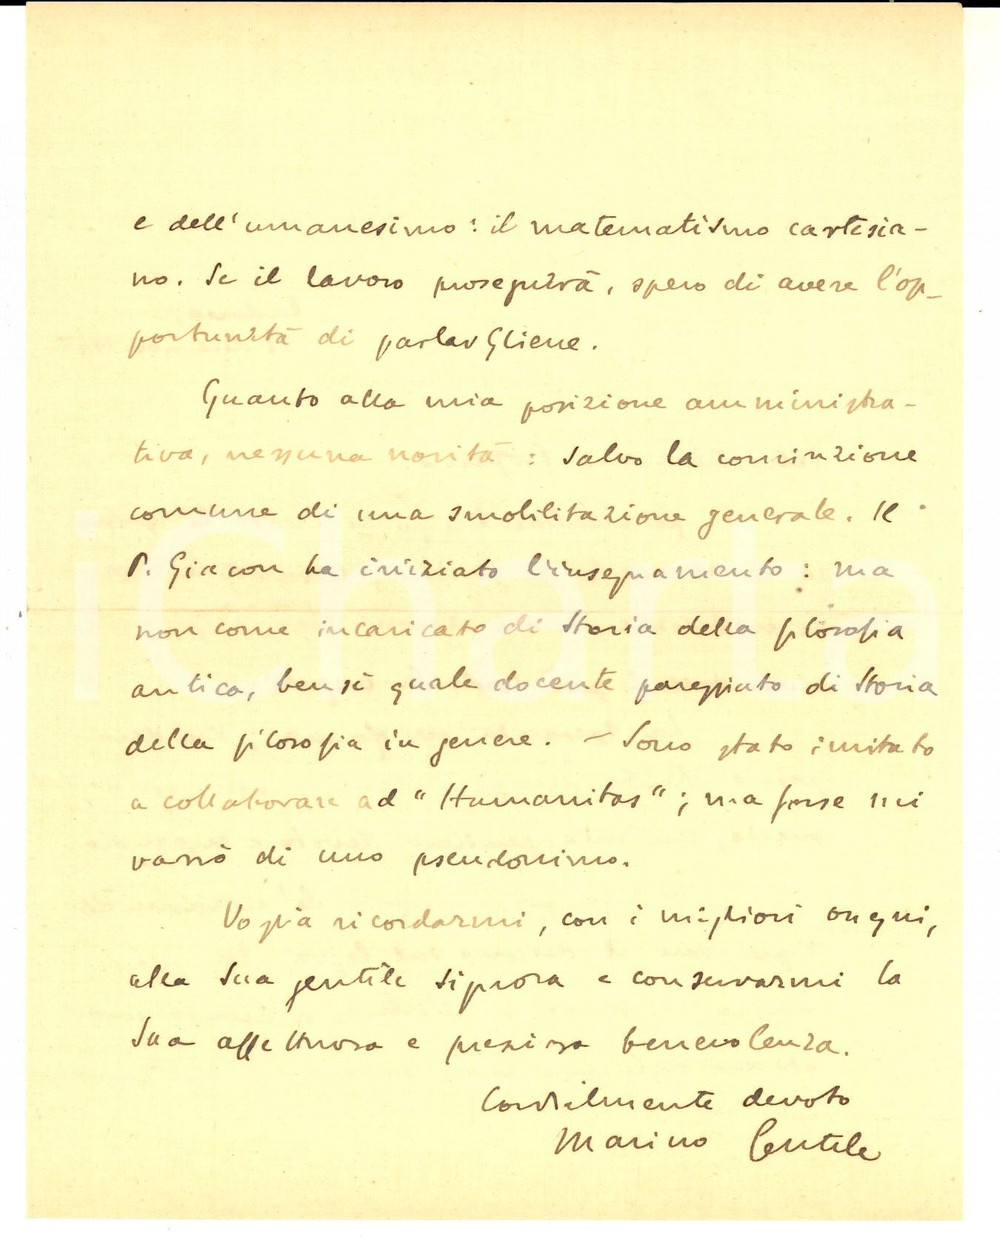 e dell'umanesimo: il matematismo cartesia-
no. Se il lavoro proseguirà, spero di avere l'op-
portunità di parlarGliene.
Quanto alla mia posizione amministra-
tiva, nessuna novità: salvo la convinzione
comune di una smobilitazione generale. Il
P. Giacon ha iniziato l'insegnamento: ma
non come incaricato di Storia della filosofia
antica, bensì quale docente pareggiato di Storia
della filosofia in genere. - Sono stato invitato
a collaborare ad "Humanitas"; ma forse mi
varrò di uno pseudonimo.
Voglia ricordarmi, con i migliori auguri,
alla Sua gentile Signora e conservarmi la
Sua affettuosa e preziosa benevolenza.
Cordialmente devoto
Marino Gentile
iCharta